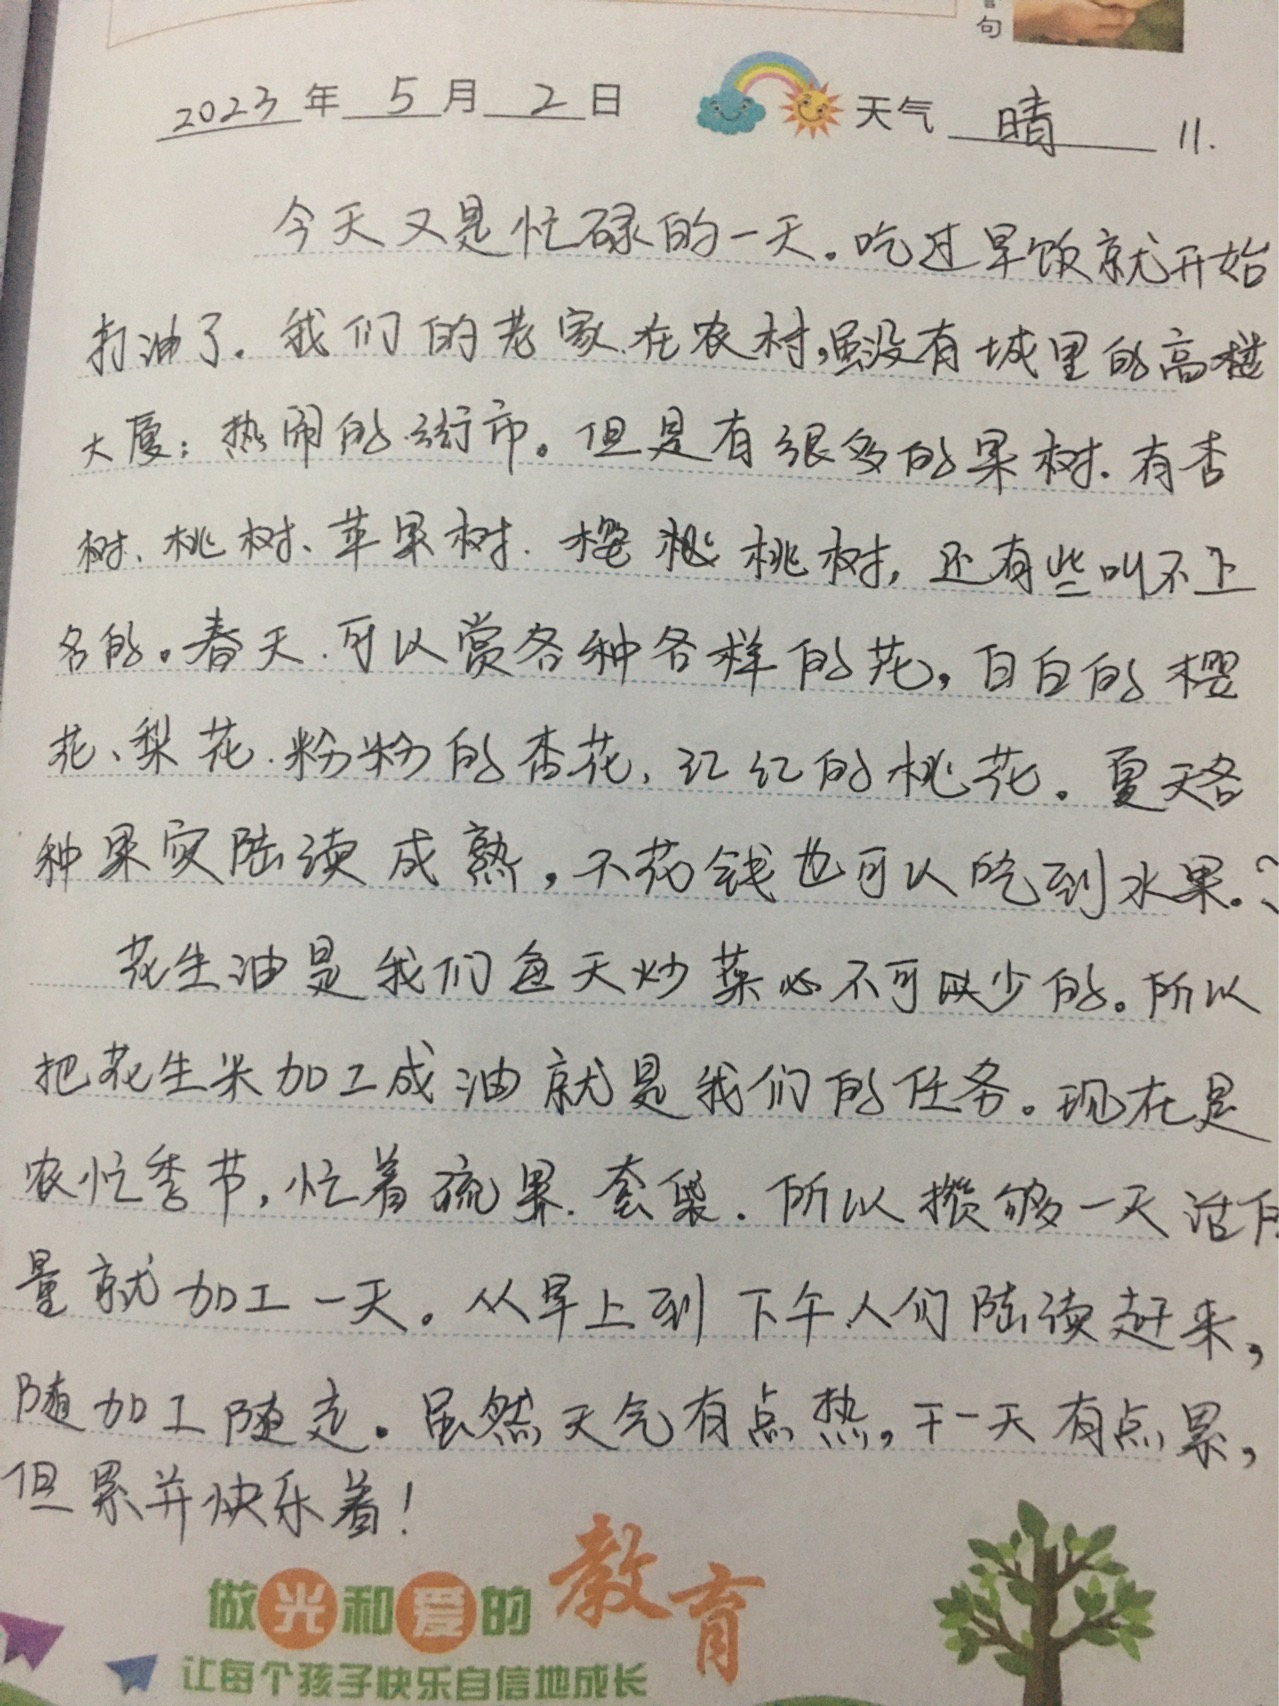 句
2023年5月2日 天气 晴 11.
今天又是忙碌的一天。吃过早饭就开始
打油了。我们的老家在农村,虽没有城里的高楼
大厦;热闹的街市。但是有很多的果树.有杏
树、桃树、苹果树.樱桃树,还有些叫不上
名的。春天.可以赏各种各样的花,白白的樱
花、梨花.粉粉的杏花,红红的桃花。夏天各
种果实陆读成熟,不花钱也可以吃到水果。
花生油是我们每天炒菜必不可缺少的。所以
把花生米加工成油就是我们的任务。现在是
农忙季节,忙着疏果.套袋.所以攒够一天活的
量就加工一天。从早上到下午人们陆读赶来,
随加工随走。虽然天气有点热,干一天有点累,
但累并快乐着!
做光和爱的教育
让每个孩子快乐自信地成长